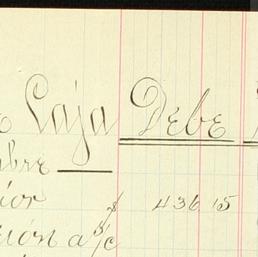 e Caja Debe
mbre
ior 436 15
ción a/c